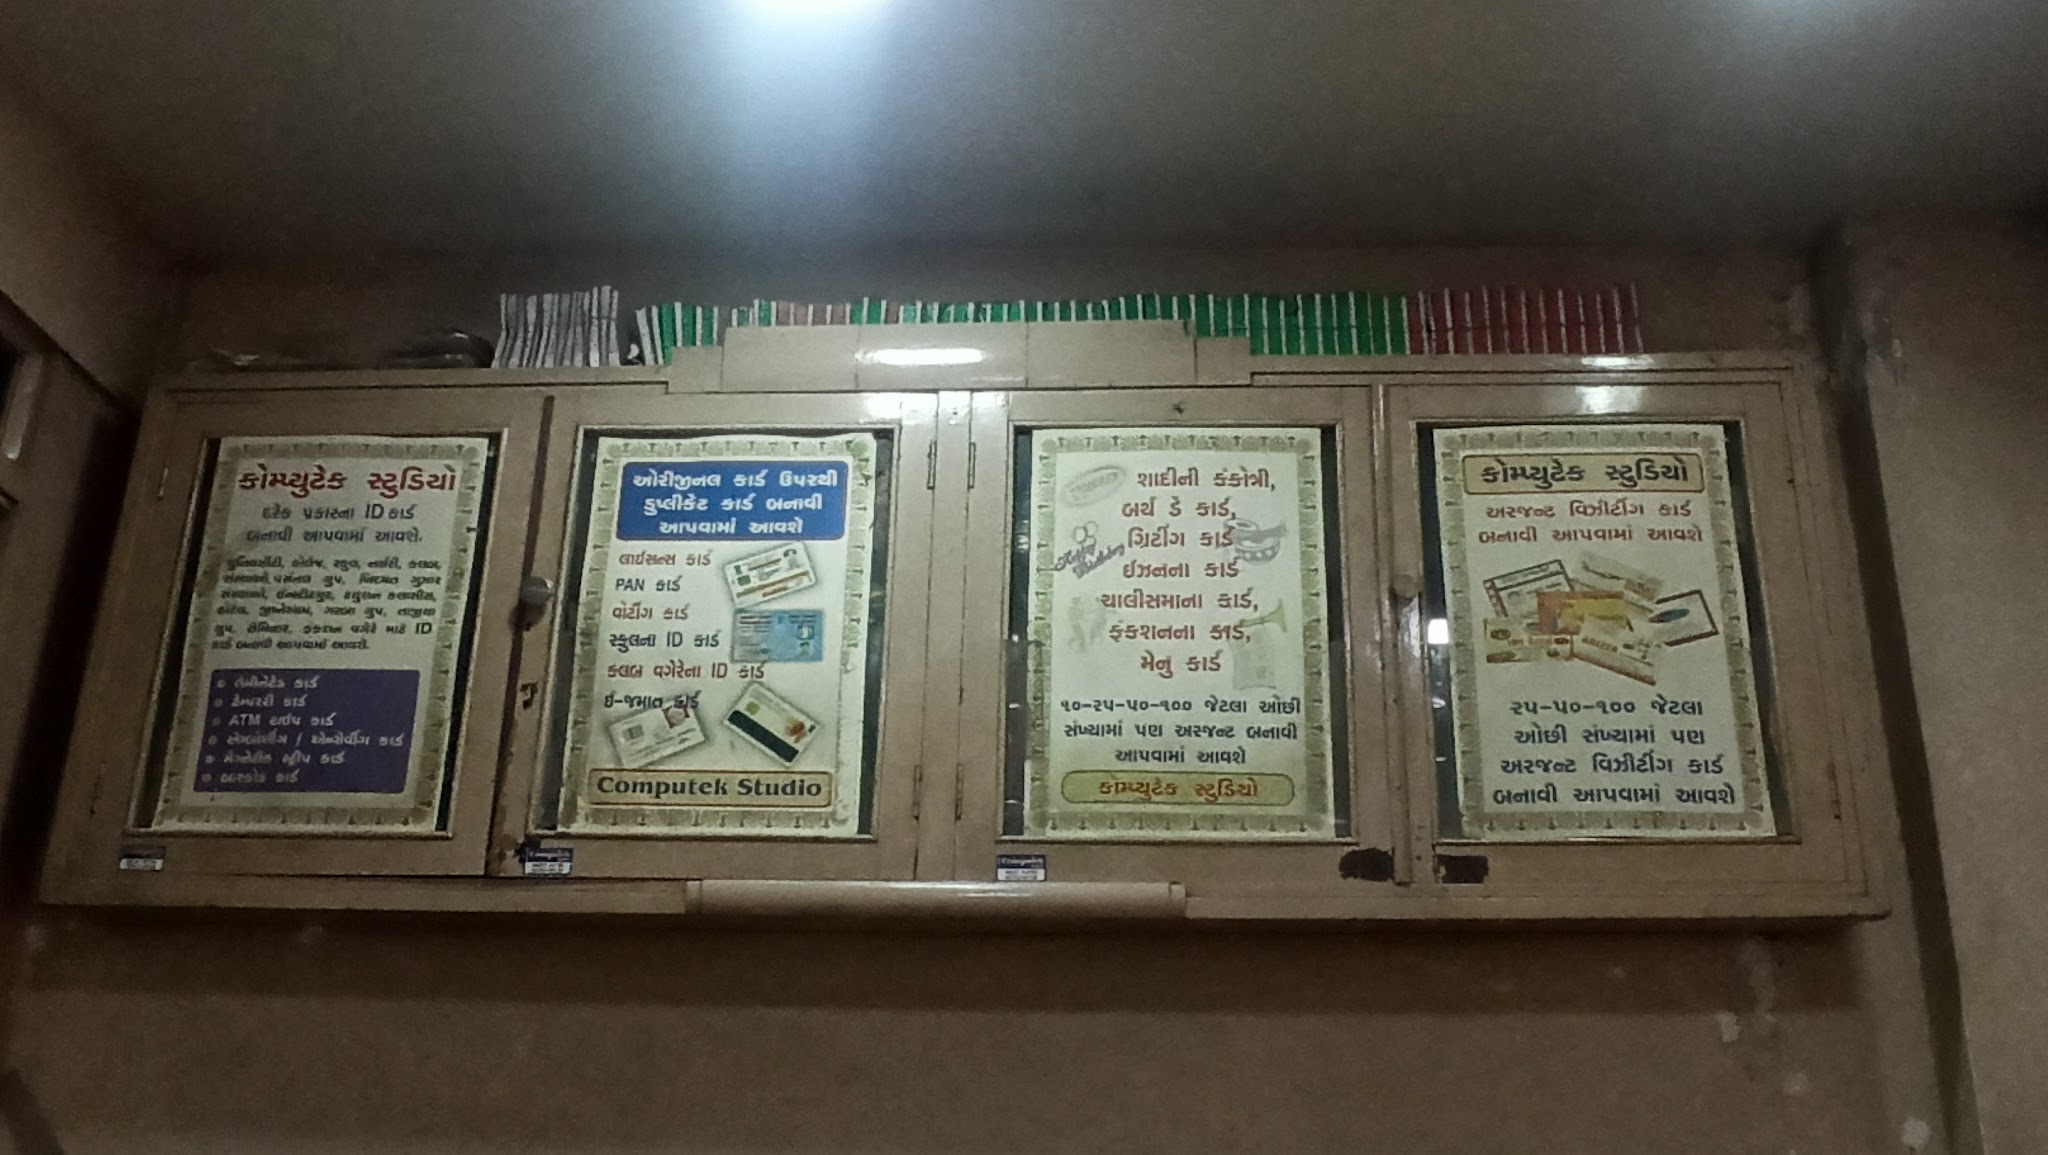 કોમ્પ્યુટેક સ્ટુડિયો
દરેક પ્રકારના ID કાર્ડ
બનાવી આપવામાં આવશે.
યુનિવર્સીટી, કોલેજ, સ્કુલ, નર્સરી, કલબ,
ગ્રુપ, સેમિનાર, ફંકશન વગેરે માટે ID
કાર્ડ બનાવી આપવામાં આવશે.
લેમીનેટેડ કાર્ડ
ટેમ્પરરી કાર્ડ
ATM ટાઈપ કાર્ડ
મેગ્નેટીક સ્ટ્રીપ કાર્ડ
બારકોડ કાર્ડ
ઓરીજીનલ કાર્ડ ઉપરથી
ડુપ્લીકેટ કાર્ડ બનાવી
આપવામાં આવશે
લાઈસન્સ કાર્ડ
PAN કાર્ડ
વોટીંગ કાર્ડ
સ્કુલના ID કાર્ડ
કલબ વગેરેના ID કાર્ડ
ઈ-જમાત કાર્ડ
Computek Studio
શાદીની કંકોત્રી,
બર્થ ડે કાર્ડ,
ગ્રિટીંગ કાર્ડ
ઈઝનના કાર્ડ
ચાલીસમાના કાર્ડ,
ફંકશનના કાર્ડ,
મેનુ કાર્ડ
૧૦-૨૫-૫૦-૧૦૦ જેટલા ઓછી
સંખ્યામાં પણ અરજન્ટ બનાવી
આપવામાં આવશે
કોમ્પ્યુટેક સ્ટુડિયો
કોમ્પ્યુટેક સ્ટુડિયો
અરજન્ટ વિઝીટીંગ કાર્ડ
બનાવી આપવામાં આવશે
૨૫-૫૦-૧૦૦ જેટલા
ઓછી સંખ્યામાં પણ
અરજન્ટ વિઝીટીંગ કાર્ડ
બનાવી આપવામાં આવશે